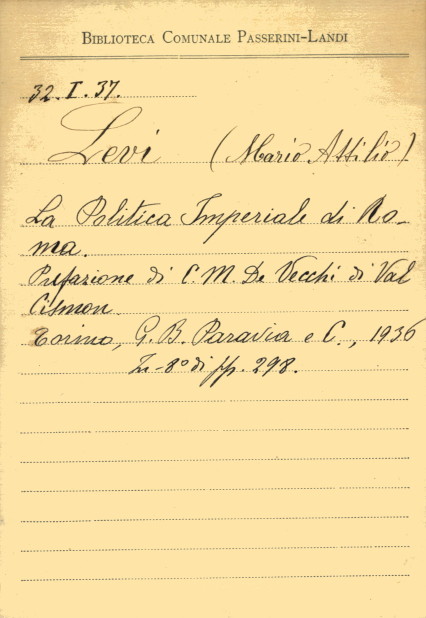 BIBLIOTECA COMUNALE PASSERINI-LANDI
32.I.37.
Levi (Mario Attilio)
La Politica Imperiale di Ro-
ma.
Prefazione di C. M. De Vecchi di Val
Cismon.
Torino, G. B. Paravia e C., 1936
In-8° di pp. 298.